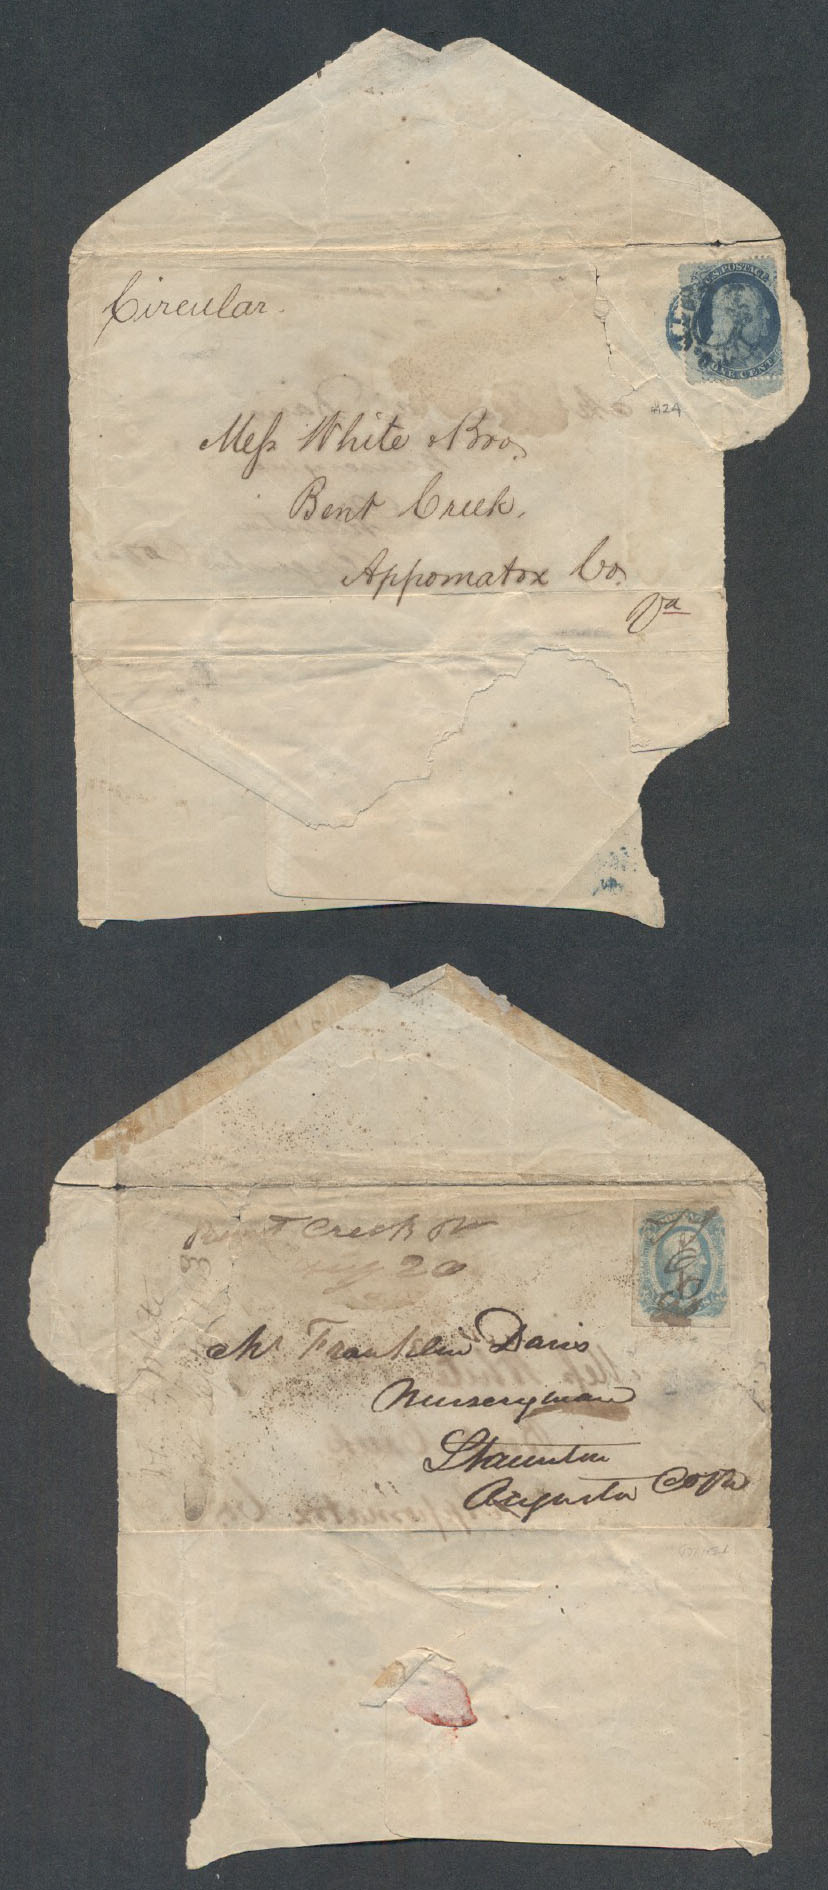 Circular.
U.S. POSTAGE
ONE CENT
#24
Mess White & Bro.
Bent Creek,
Appomatox Co.
Va
Bent Creek Va
20
Mr Franklin Davis
Nurseryman
Staunton
Augusta Co Va
White